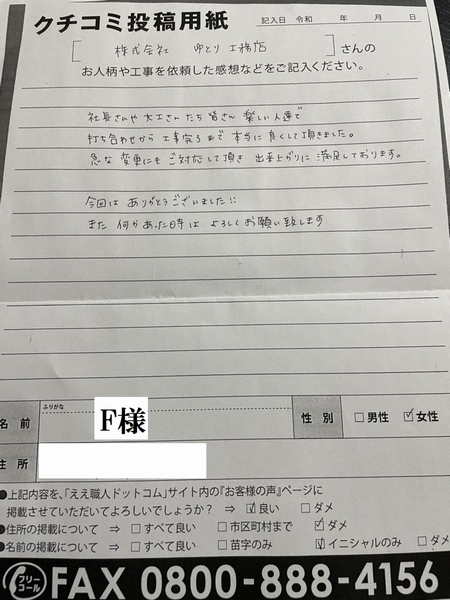 クチコミ投稿用紙
記入日 令和 年 月 日
[株式会社 ゆとり工務店]さんの
お人柄や工事を依頼した感想などをご記入ください。
社長さんや大工さんたち皆さん楽しい人達で
打ち合わせから工事完了まで本当に良くして頂きました。
急な変更にもご対応して頂き出来上がりに満足しております。
今回はありがとうございました!!
また何かあった時はよろしくお願い致します
ふりがな
名前 F様 性別 □男性 ☑女性
住所
●上記内容を、「ええ職人ドットコム」サイト内の『お客様の声』ページに
掲載させていただいてよろしいでしょうか? ⇒ ☑良い □ダメ
●住所の掲載について ⇒ □すべて良い □市区町村まで ☑ダメ
●名前の掲載について ⇒ □すべて良い □苗字のみ ☑イニシャルのみ □ダメ
フリーコール FAX 0800-888-4156